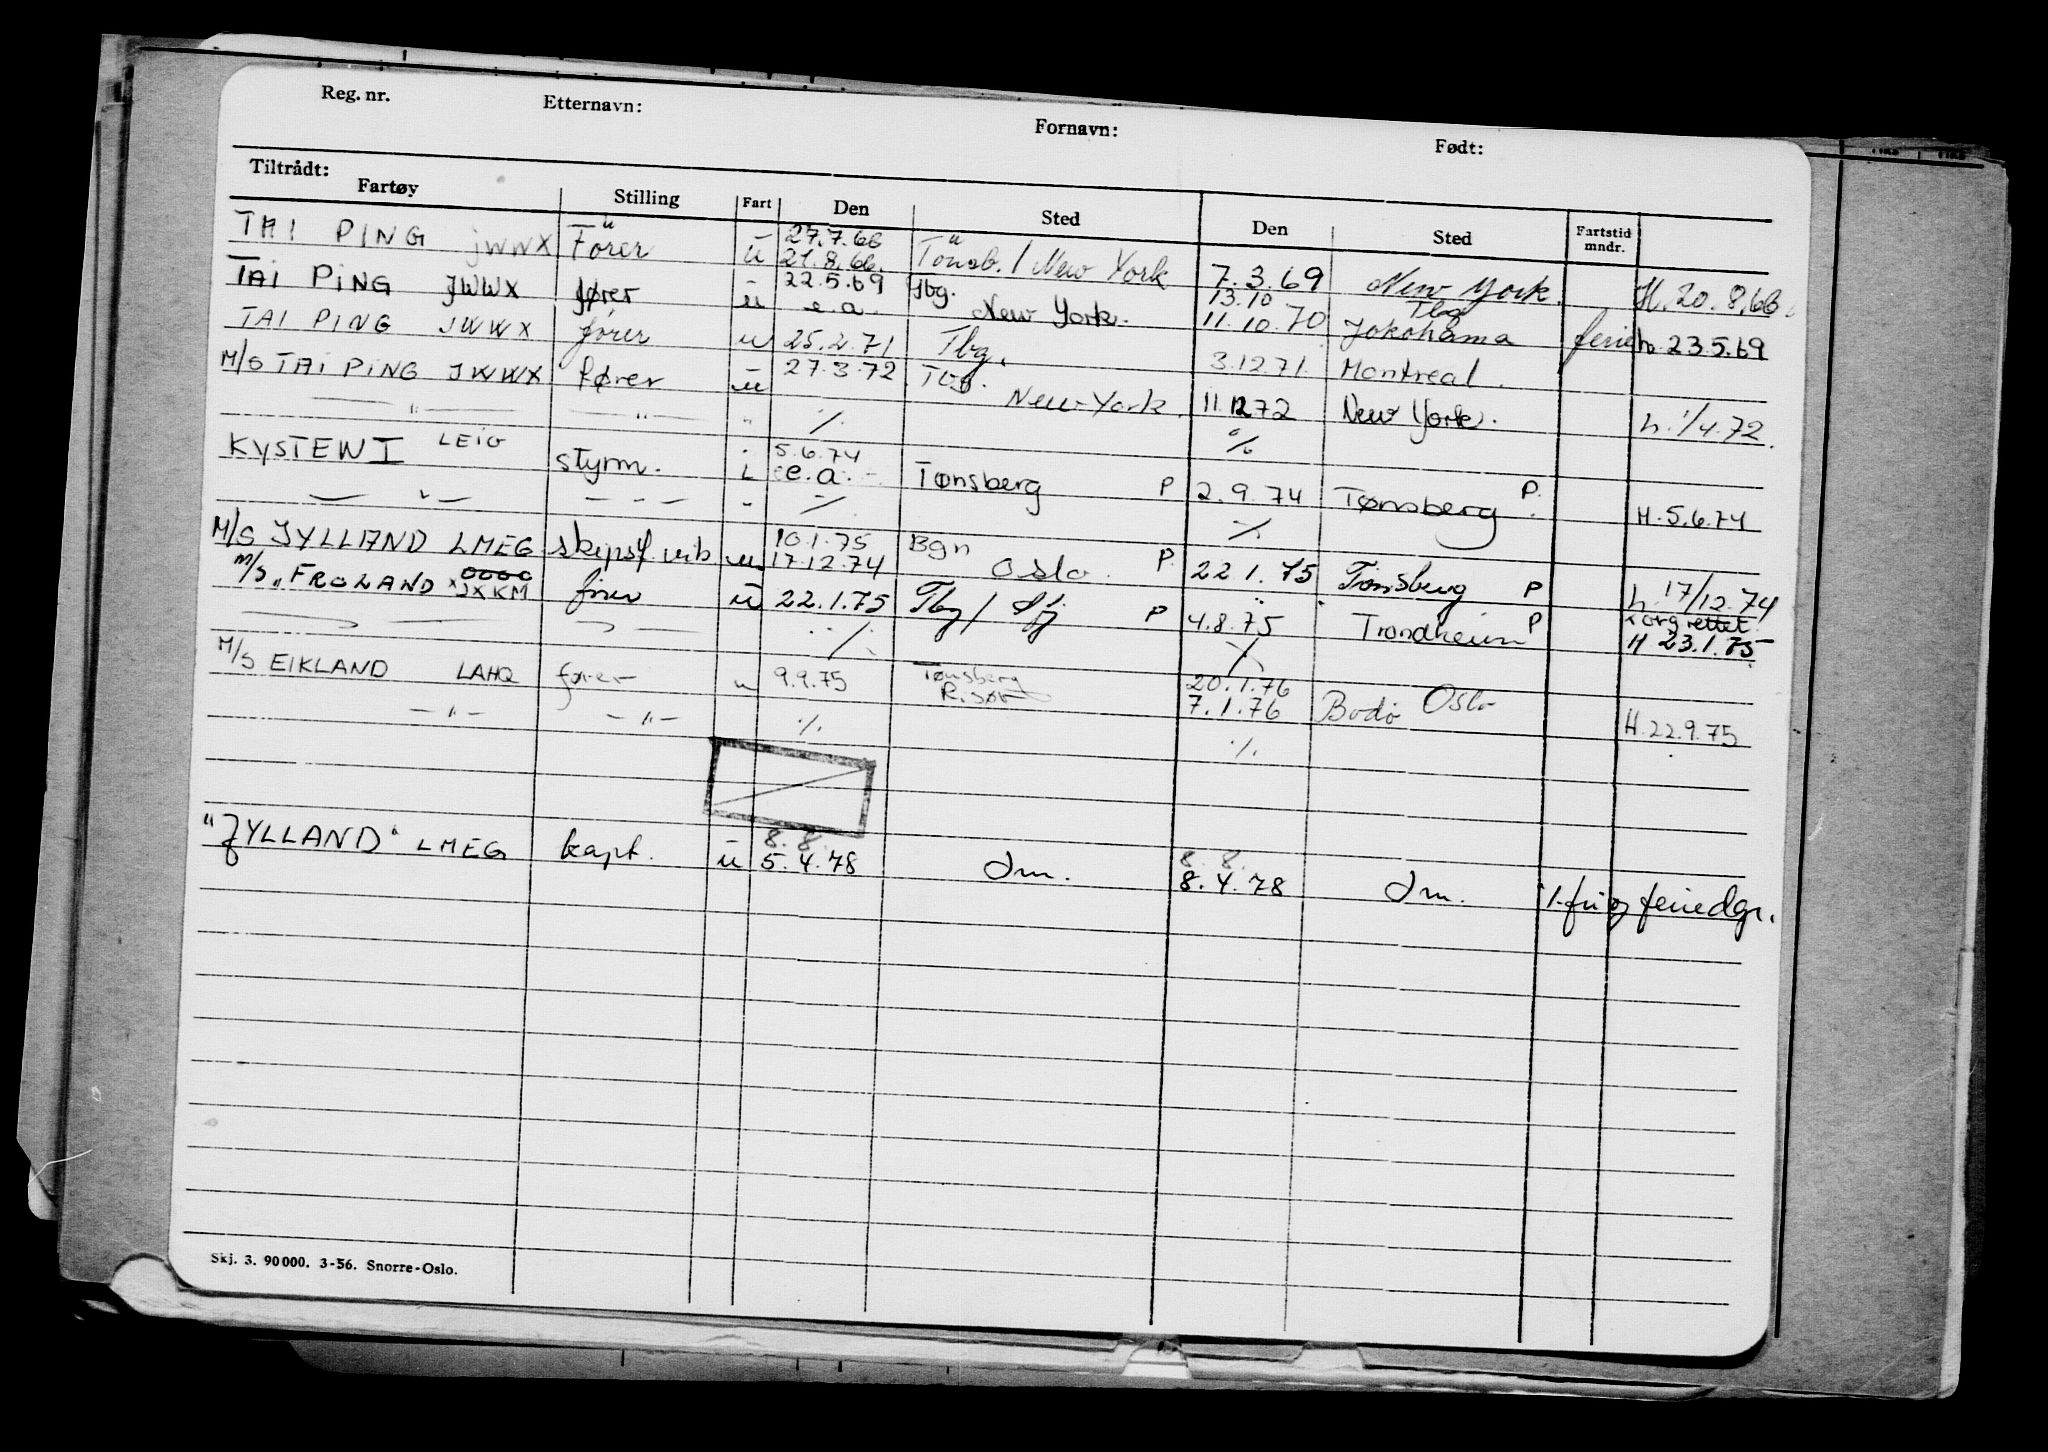 Reg. nr. Etternavn: Fornavn: Født:
Tiltrådt:
Fartøy Stilling Fart Den Sted Den Sted Fartstid mndr.
TAI PING JWWX Förer u 27.7.66 21.8.66. Tönsb. / New York 7.3.69 New York. H. 20.8.66.
TAI PING JWWX fører u 22.5.69 e.a. Tbg. New York. 13.10 11.10.70 Tbg Jokohama ferie h. 23.5.69
TAI PING JWWX fører u 25.2.71 Tbg. 3.12.71. Montreal.
M/S TAI PING JWWX fører u 27.3.72 Tbg. New York. 11.12.72 New York. h. 1/4.72.
— " — — " — " ./. ./.
KYSTEN I LEIG styrm. L 5.6.74 e.a. Tønsberg P 2.9.74 Tønsberg P. H. 5.6.74
— " — — " — - ./. ./.
M/S JYLLAND LMEG skipsf. vik u 10.1.75 17.12.74 Bgn Oslo. P. 22.1.75 Tønsberg P h. 17/12.74
M/S "FROLAND JXKM fører u 22.1.75 Tbg / P 4.8.75 Trondheim P rettet H 23.1.75
— " — — " — ./. ./.
M/S EIKLAND LAHQ fører u 9.9.75 Tønsberg Risør 20.1.76 7.1.76 Bodö Oslo H. 22.9.75
— " — — " — ./. ./.
"JYLLAND" LMEG kapt. u 8. 8. 5.4.78 Dm. 8. 8. 8.4.78 Dm. feriedgr.
Skj. 3. 90000. 3-56. Snorre-Oslo.